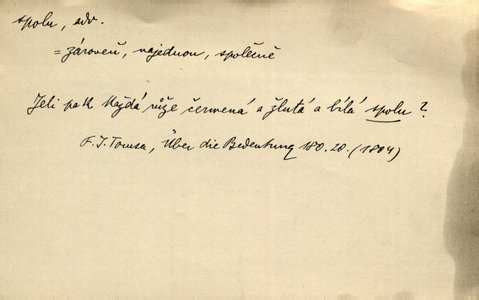 spolu, adv.
= zároveň, najednou, společně
Jeli pak každá růže červená a žlutá a bílá spolu?
F. J. Tomsa, Über die Bedeutung 180. 28. (1804)